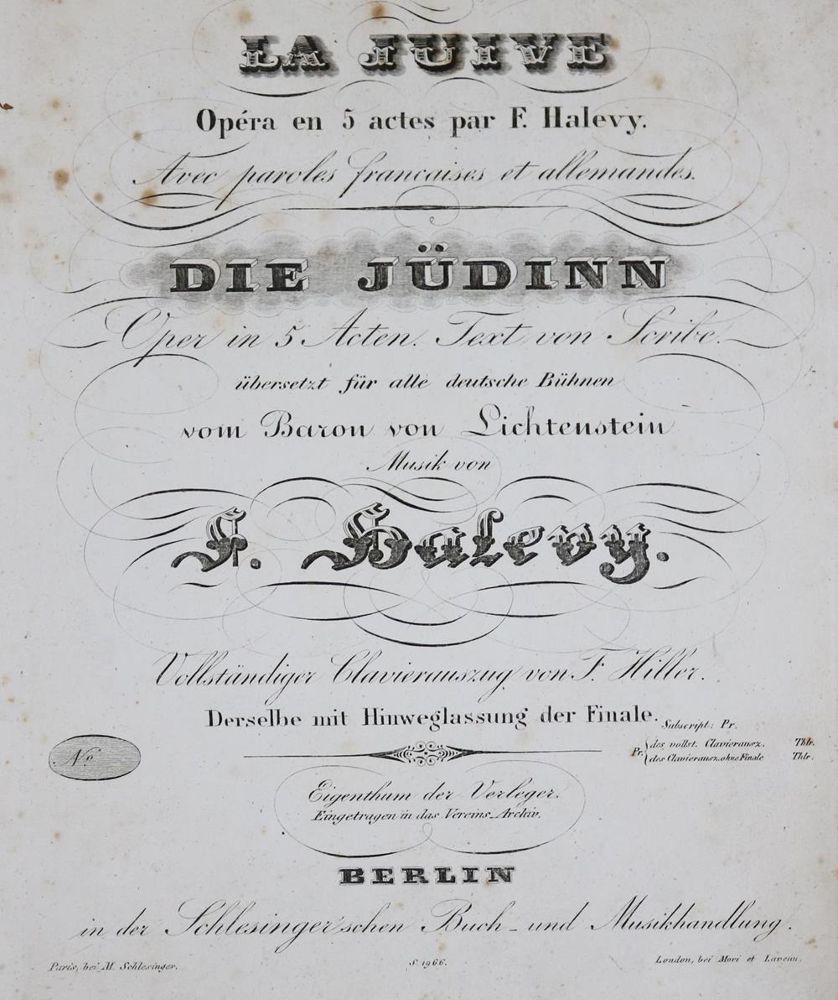 LA JUIVE
Opéra en 5 actes par F. Halevy.
Avec paroles francaises et allemandes.
DIE JÜDINN
Oper in 5 Acten. Text von Scribe.
übersetzt für alle deutsche Bühnen
vom Baron von Lichtenstein
Musik von
F. Halevy.
Vollständiger Clavierauszug von F. Hiller.
Derselbe mit Hinweglassung der Finale.
Subscript: Pr.
Pr. des vollst. Clavierausz. Thlr.
des Clavierausz. ohne Finale Thlr.
No
Eigenthum der Verleger.
Eingetragen in das Vereins-Archiv.
BERLIN
in der Schlesinger'schen Buch- und Musikhandlung.
Paris, bei M. Schlesinger. S. 1966. London, bei Mori et Lavenu.